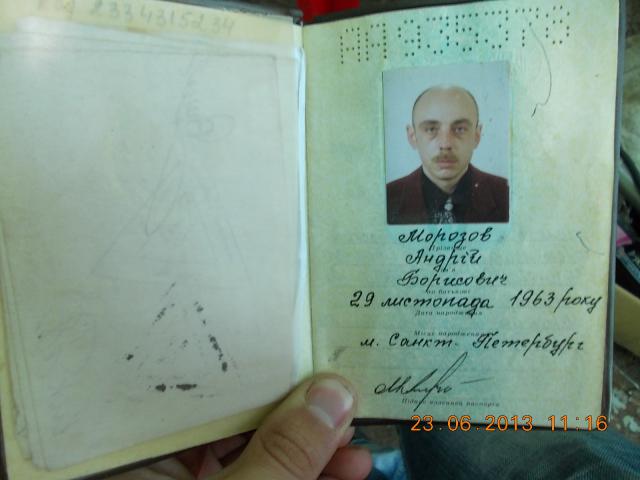 2334315234
Морозов
Прізвище
Андрій
Ім'я
Борисович
по батькові
29 листопада 1963 року
Дата народження
Місце народження
м. Санкт-Петербург
Підпис власника паспорта
23.06.2013 11:16